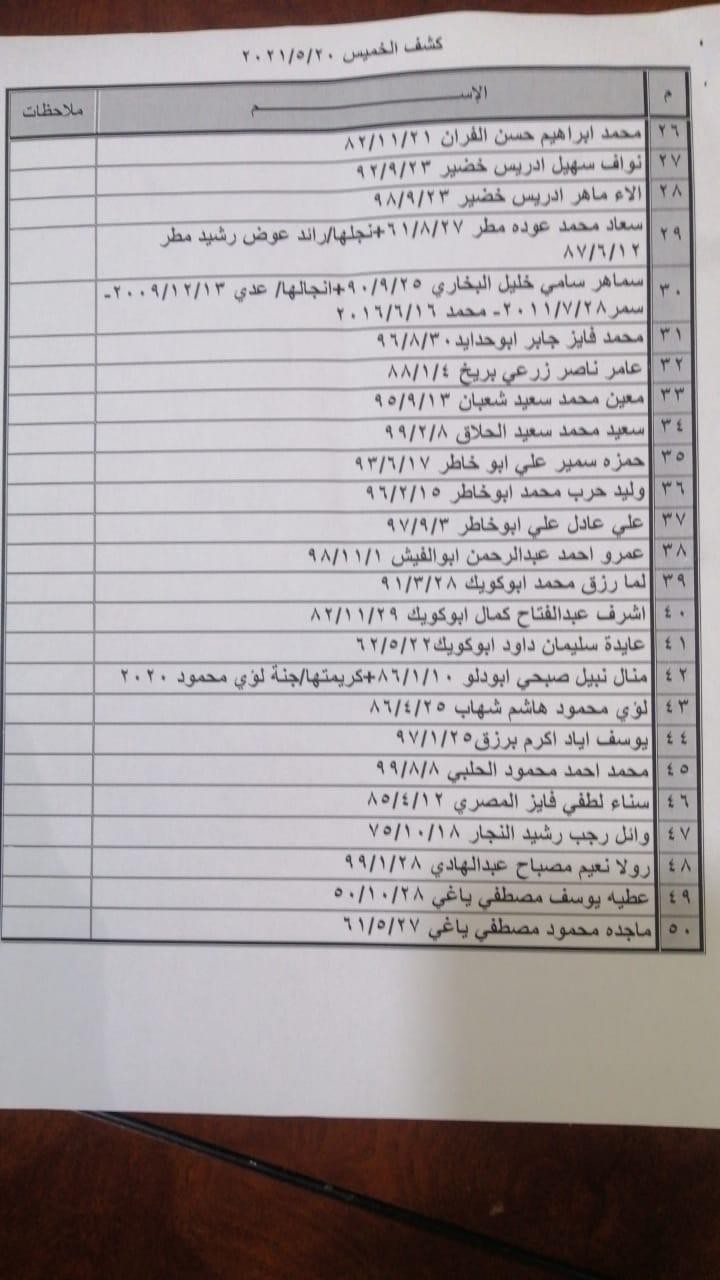 كشف الخميس ٢٠٢١/٥/٢٠
م الإســــــم ملاحظات
٢٦ محمد ابراهيم حسن الفران ٨٢/١١/٢١
٢٧ نواف سهيل ادريس خضير ٩٢/٩/٢٣
٢٨ الاء ماهر ادريس خضير ٩٨/٩/٢٣
٢٩ سعاد محمد عوده مطر ٦١/٨/٢٧+نجلها/رائد عوض رشيد مطر
٨٧/٦/١٢
٣٠ سماهر سامي خليل البخاري ٩٠/٩/٢٥+انجالها/ عدي ٢٠٠٩/١٢/١٣-
سمر٢٠١١/٧/٢٨- محمد ٢٠١٦/٦/١٦
٣١ محمد فايز جابر ابوحدايد٩٦/٨/٣٠
٣٢ عامر ناصر زرعي بريخ ٨٨/١/٤
٣٣ معين محمد سعيد شعبان ٩٥/٩/١٣
٣٤ سعيد محمد سعيد الحلاق ٩٩/٢/٨
٣٥ حمزه سمير علي ابو خاطر ٩٣/٦/١٧
٣٦ وليد حرب محمد ابوخاطر ٩٦/٢/١٥
٣٧ علي عادل علي ابوخاطر ٩٧/٩/٣
٣٨ عمرو احمد عبدالرحمن ابوالفيش ٩٨/١١/١
٣٩ لما رزق محمد ابوكويك ٩١/٣/٢٨
٤٠ اشرف عبدالفتاح كمال ابوكويك ٨٢/١١/٢٩
٤١ عايدة سليمان داود ابوكويك٦٢/٥/٢٢
٤٢ منال نبيل صبحي ابودلو ٨٦/١/١٠+كريمتها/جنة لؤي محمود ٢٠٢٠
٤٣ لؤي محمود هاشم شهاب ٨٦/٤/٢٥
٤٤ يوسف اياد اكرم برزق٩٧/١/٢٥
٤٥ محمد احمد محمود الحلبي ٩٩/٨/٨
٤٦ سناء لطفي فايز المصري ٨٥/٤/١٢
٤٧ وائل رجب رشيد النجار ٧٥/١٠/١٨
٤٨ رولا نعيم مصباح عبدالهادي ٩٩/١/٢٨
٤٩ عطيه يوسف مصطفي ياغي ٥٠/١٠/٢٨
٥٠ ماجده محمود مصطفي ياغي ٦١/٥/٢٧